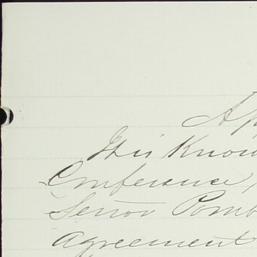 Ap
His Know
Conference,
Señor Pomb
agreement